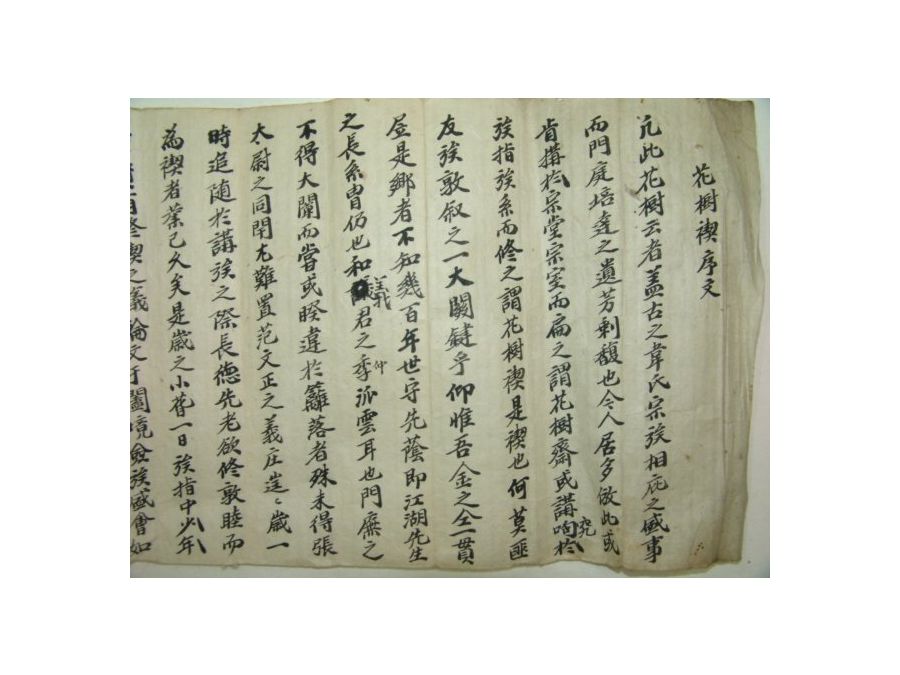 花樹禊序文
凢此花樹云者盖古之韋氏宗族相庇之盛事
而門庭培達之遺芳剩馥也今人居多倣此或
肯搆於宗堂宗室而扁之謂花樹齋或講究於
族指族系而修之謂花樹禊是禊也何莫匪
友族敦叙之一大関鍵乎仰惟吾金之仝一貫
居是鄉者不知幾百年世守先蔭即江湖先生
之長系胄仍也和義君之季仲派雲耳也門廡之
不得大闡而嘗或暌違於籬落者殊未得張
太尉之同閈尤難置范文正之義庄豈歲一
時追隨於講族之際長德先老欲修敦睦而
為禊者業已久矣是歲之小春一日族指中少年
禊之議論文于闔境僉族咸會如